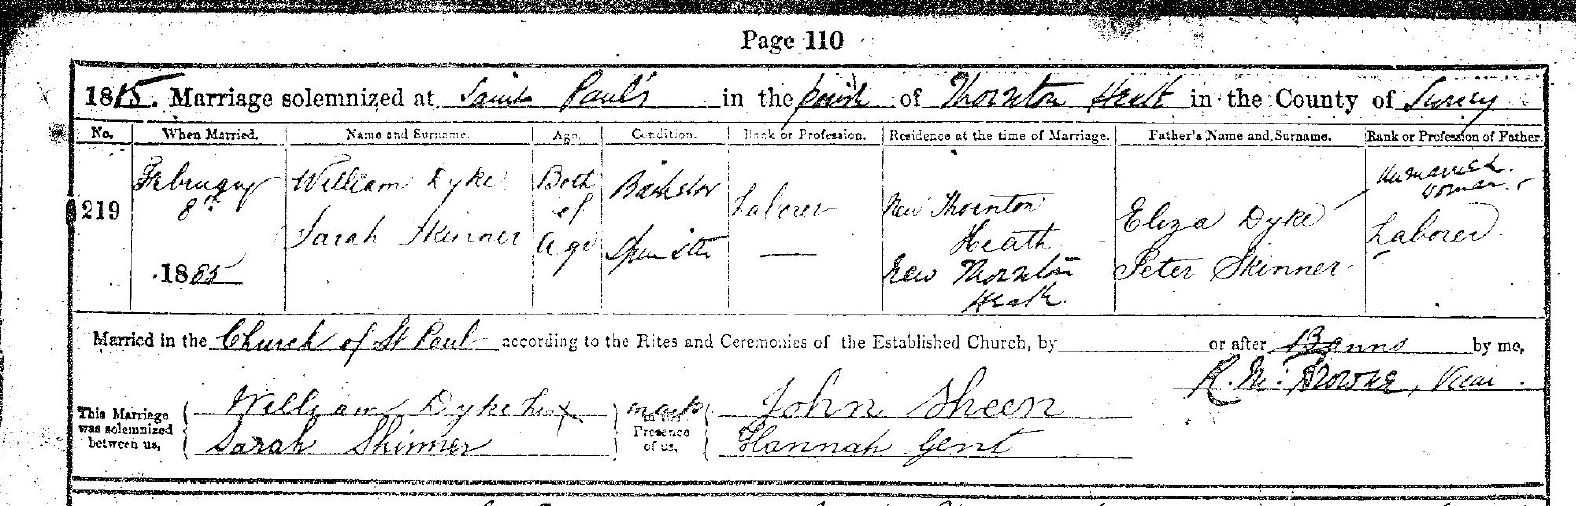 Page 110
1885. Marriage solemnized at Saint Paul's in the parish of Thornton Heath in the County of Surrey
No. When Married. Name and Surname. Age. Condition. Rank or Profession. Residence at the time of Marriage. Father's Name and Surname. Rank or Profession of Father.
219 February 8th 1885 William Dyke Both of Age Bachelor Laborer New Thornton Heath Eliza Dyke woman.
Sarah Skinner Spinster — New Thornton Heath Peter Skinner Laborer
Married in the Church of St Paul according to the Rites and Ceremonies of the Established Church, by or after Banns by me,
R. M. Browne, Vicar.
This Marriage was solemnized between us, William Dyke his X mark in the Presence of us, John Sheen
Sarah Skinner Hannah Gent